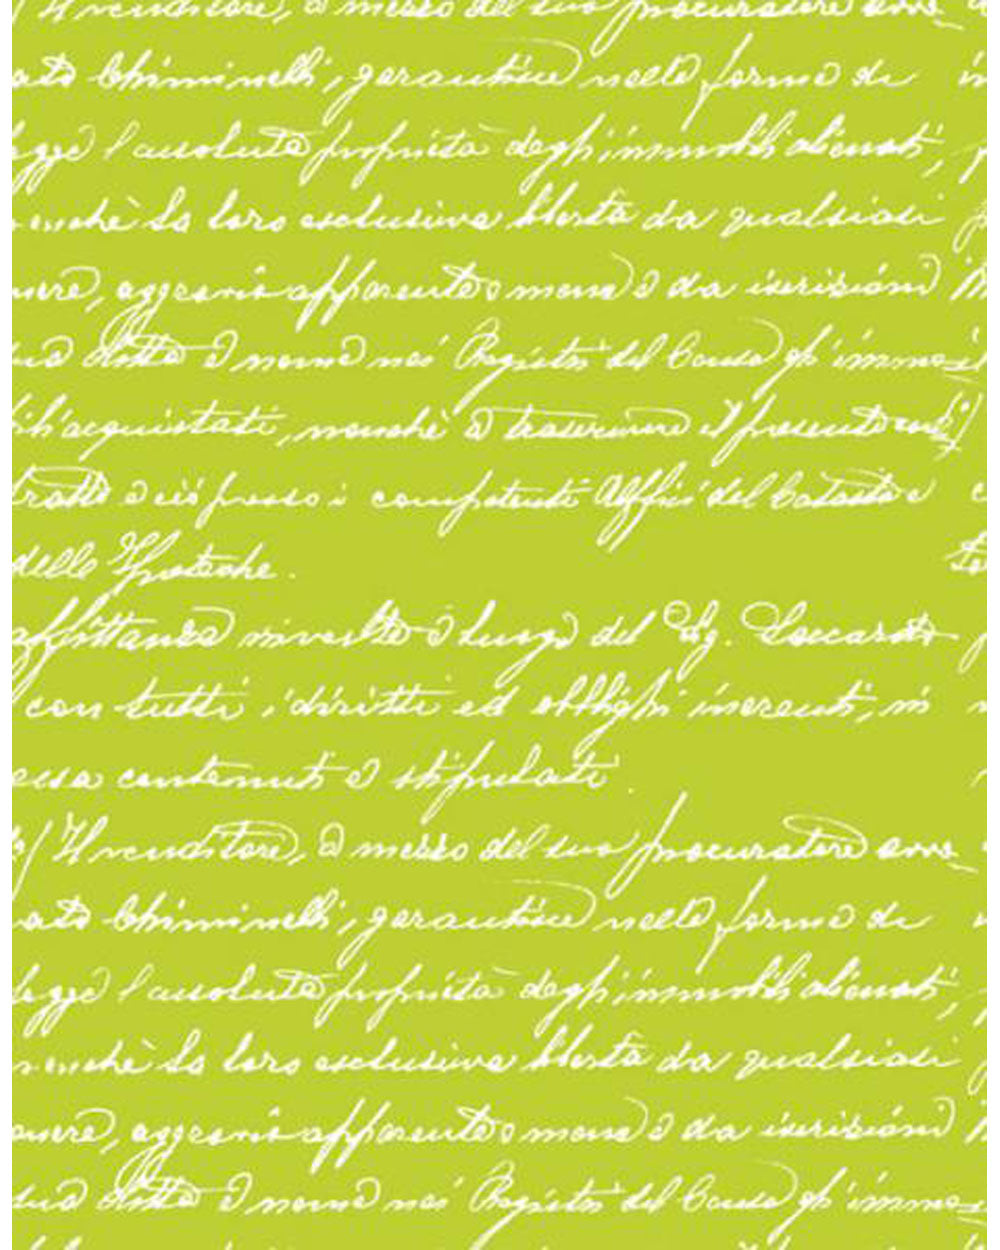 Il venditore, a mezzo del suo procuratore avv.
ato Chiminelli, garantisce nelle forme di
legge l'assoluta proprietà degli immobili alienati,
nonchè la loro esclusiva libertà da qualsiasi
onere, aggravio apparente o meno e da iscrizioni
sua ditta e nome nei Registri del Censo gli immo-
bili acquistati, nonchè a trascrivere il presente con-
tratto e ciò presso i competenti Uffici del Catasto e
delle Ipoteche.
affittanza rivolto a luogo del Sig.
con tutti i diritti ed obblighi inerenti, in
essa contenuti e stipulati.
Il venditore, a mezzo del suo procuratore avv.
ato Chiminelli, garantisce nelle forme di
legge l'assoluta proprietà degli immobili alienati,
nonchè la loro esclusiva libertà da qualsiasi
onere, aggravio apparente o meno e da iscrizioni
sua ditta e nome nei Registri del Censo gli immo-